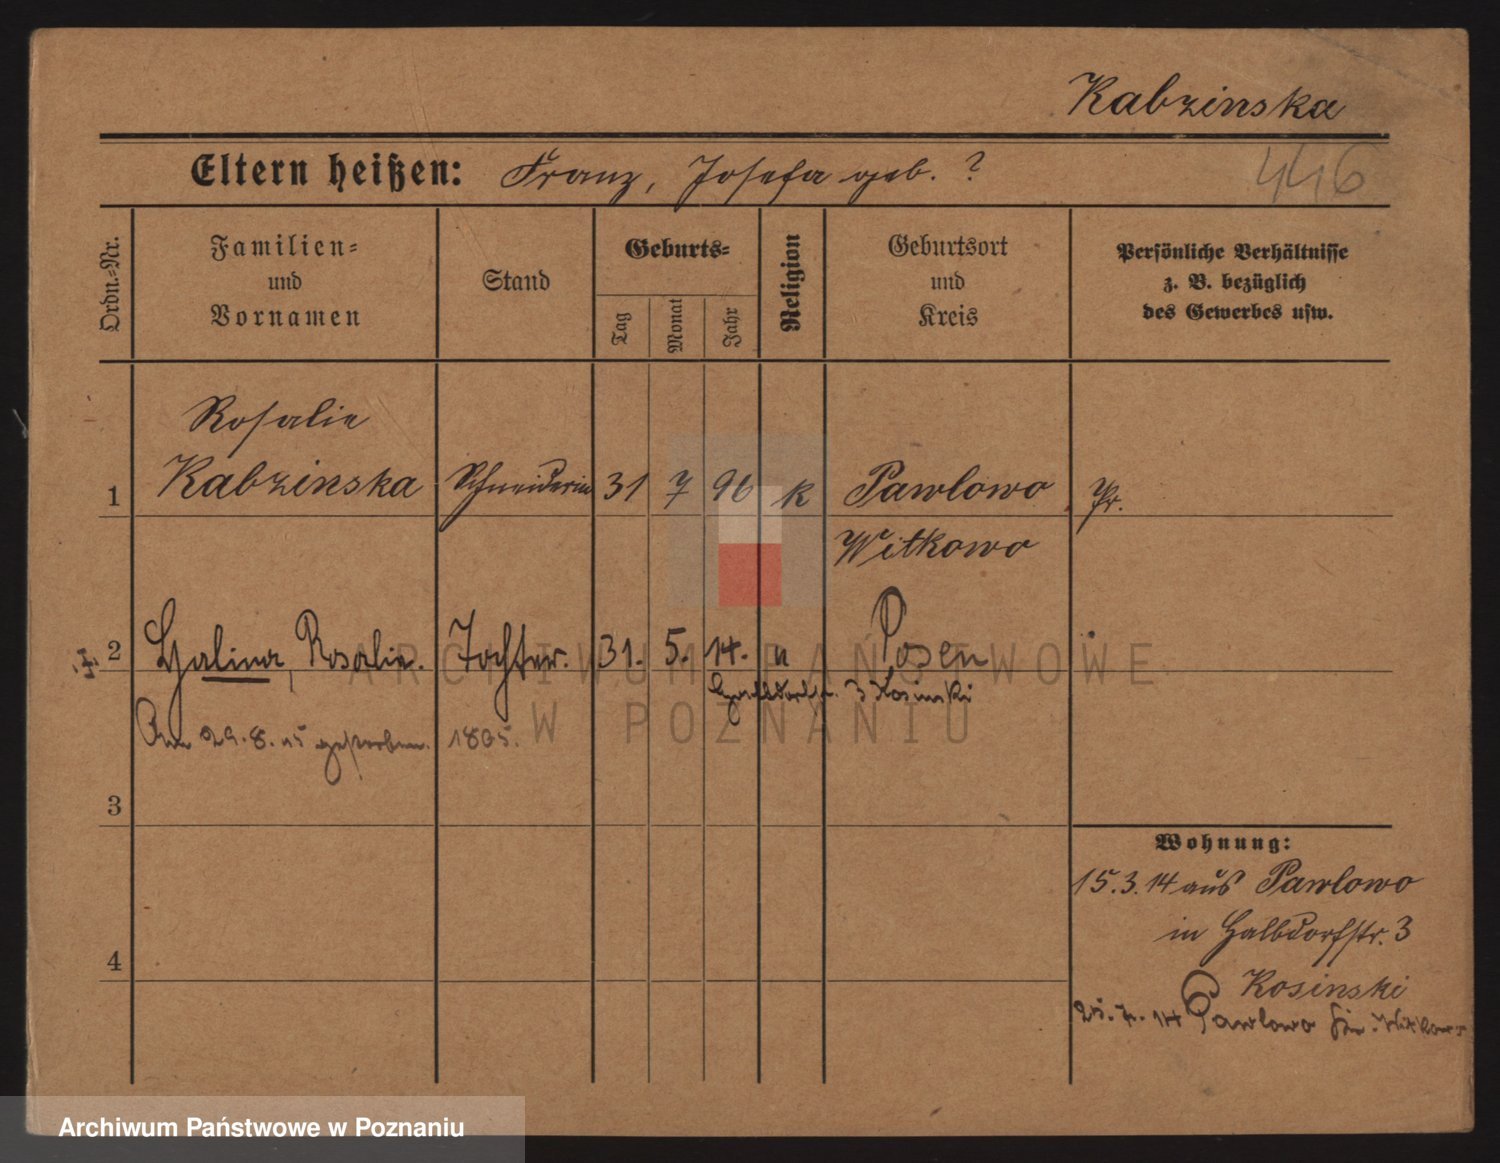 Kabzinska
Eltern heißen: Franz, Josefa geb. ?
446
Ordn.=Nr.
Familien=
und
Vornamen
Stand
Geburts=
Tag
Monat
Jahr
Religion
Geburtsort
und
Kreis
Persönliche Verhältnisse
z. B. bezüglich
des Gewerbes usw.
Rosalie
1 Kabzinska Schneiderin 31 7 96 k Pawlowo Pr.
Witkowo
2 Halina, Rosalie. Tochter. 31. 5. 14. " Posen "
Halbdorfstr. 3 Kosinski
Am 29.8.15 gestorben. 1805.
3
4
Wohnung:
15.3.14 aus Pawlowo
in Halbdorfstr. 3
Kosinski
25.7.14 Pawlowo Kr. Witkowo
ARCHIWUM PAŃSTWOWE
W POZNANIU
Archiwum Państwowe w Poznaniu